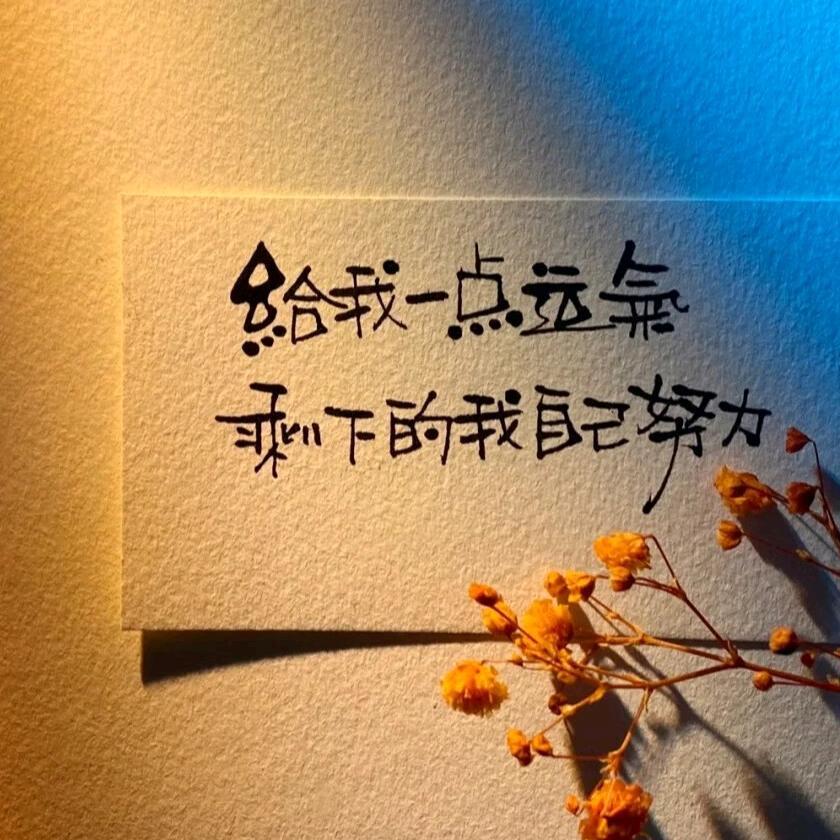 給我一点运氣
剩下的我自己努力